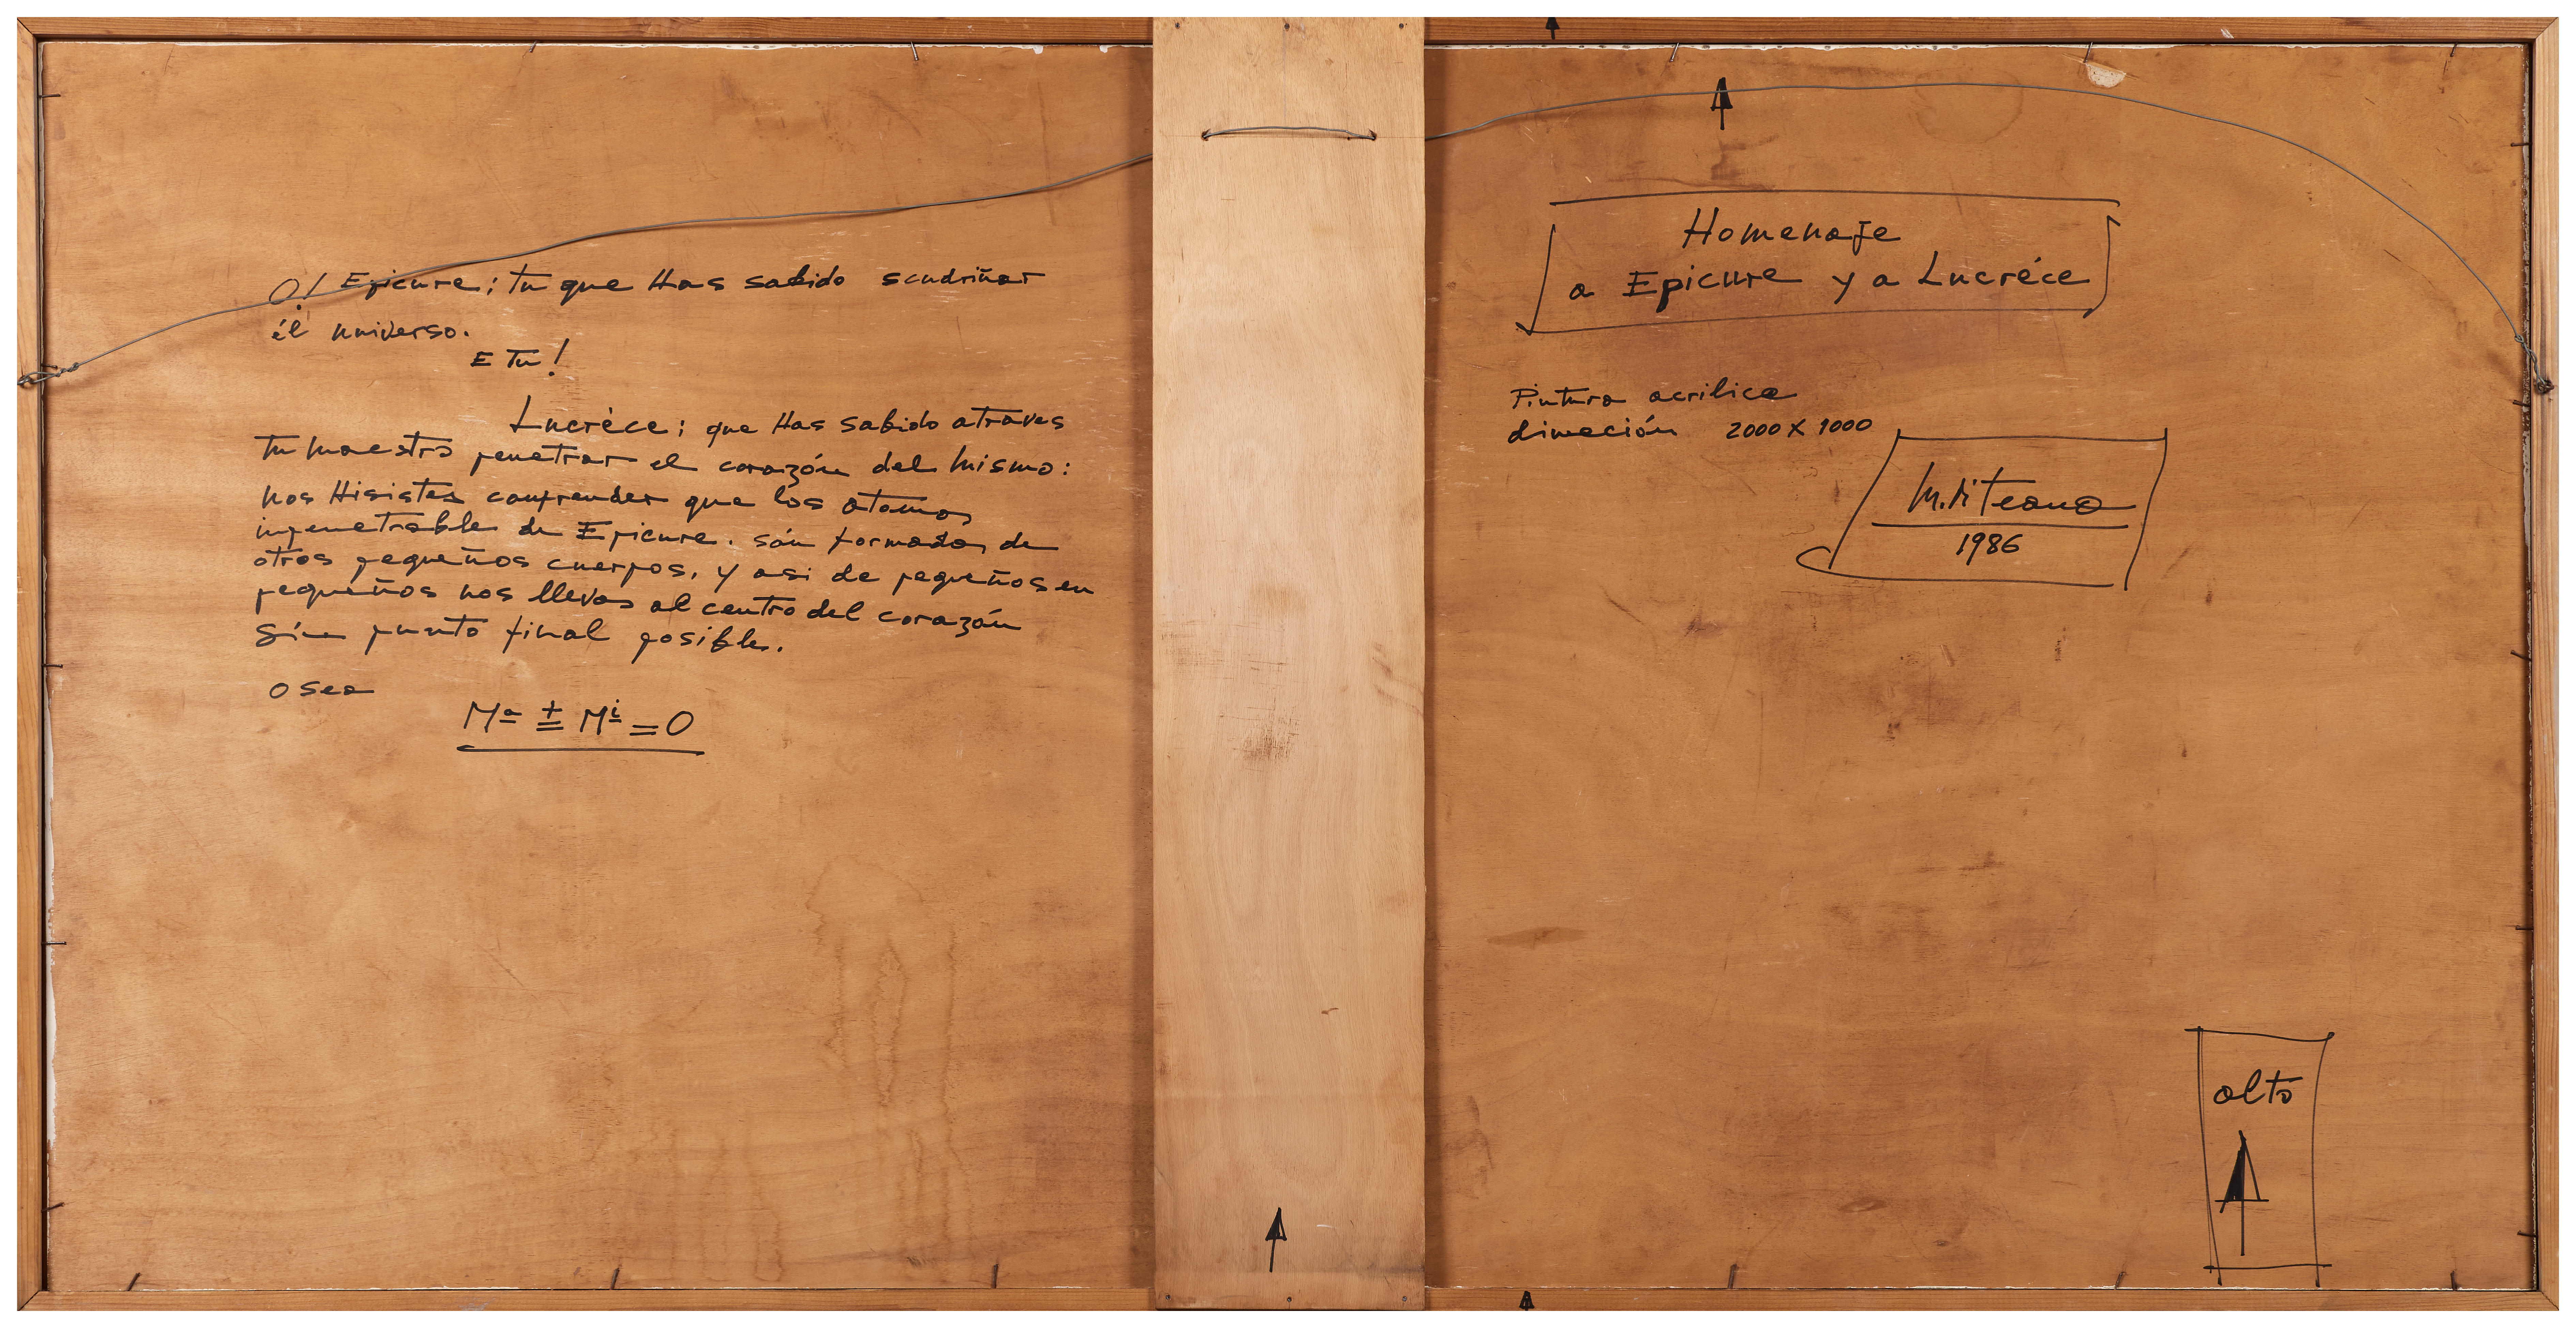 O! Epicure; tu que Has sabido scudriñar
él universo.
E Tu!
Lucrèce; que Has sabido atraves
tu maestro penetrar el corazón del mismo:
nos Hisistes comprender que los atomos
impenetrable de Epicure. són formados de
otros pequeños cuerpos, y asi de pequeños en
pequeños nos llevas al centro del corazón
Sín punto final posible.
o sea
Mª ± Mⁱ = 0
Homenaje
a Epicure y a Lucréce
Pintura acrilica
dimeción 2000 X 1000
M. di Teana
1986
alto